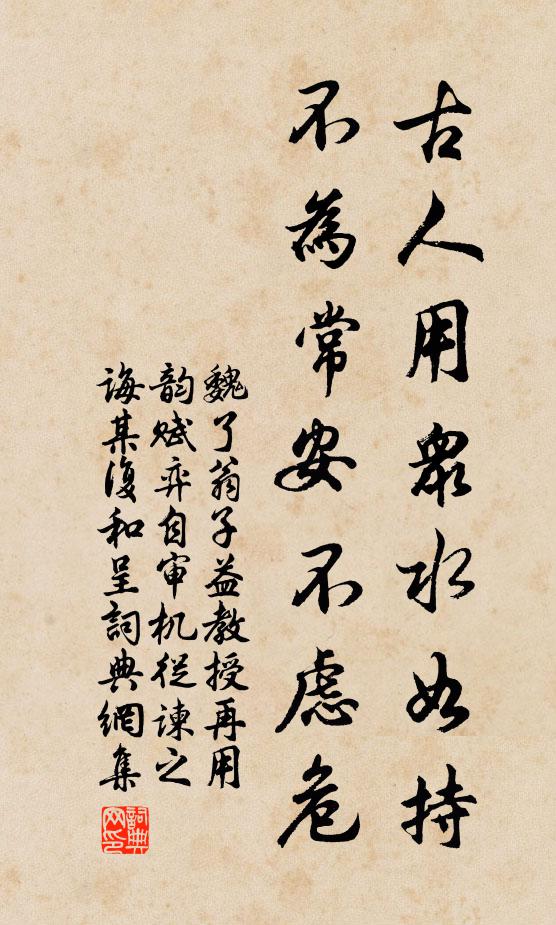 古人用衆水如持
不為常安不慮危
魏了翁子益教授再用
韵赋弈自审机从谏之
诲某復和呈詞典網集
詞典网印